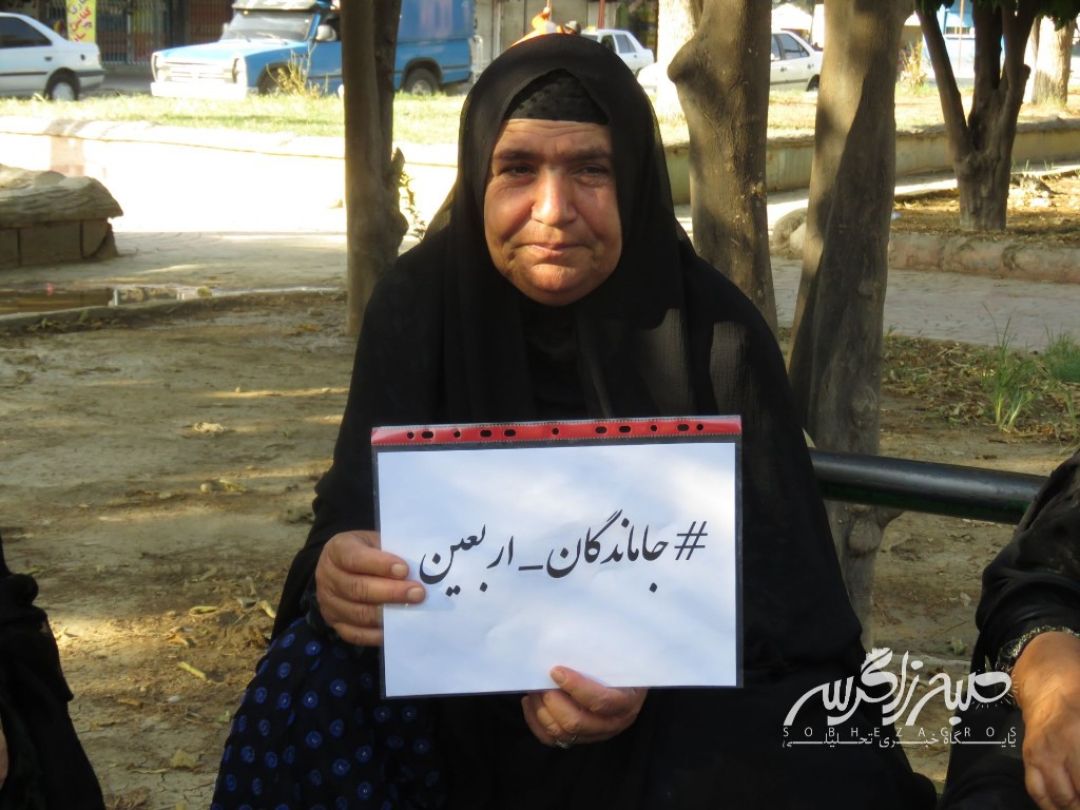 #جاماندگان_اربعین
صبح زاگرس
SOBHEZAGROS
پایگاه خبری تحلیلی